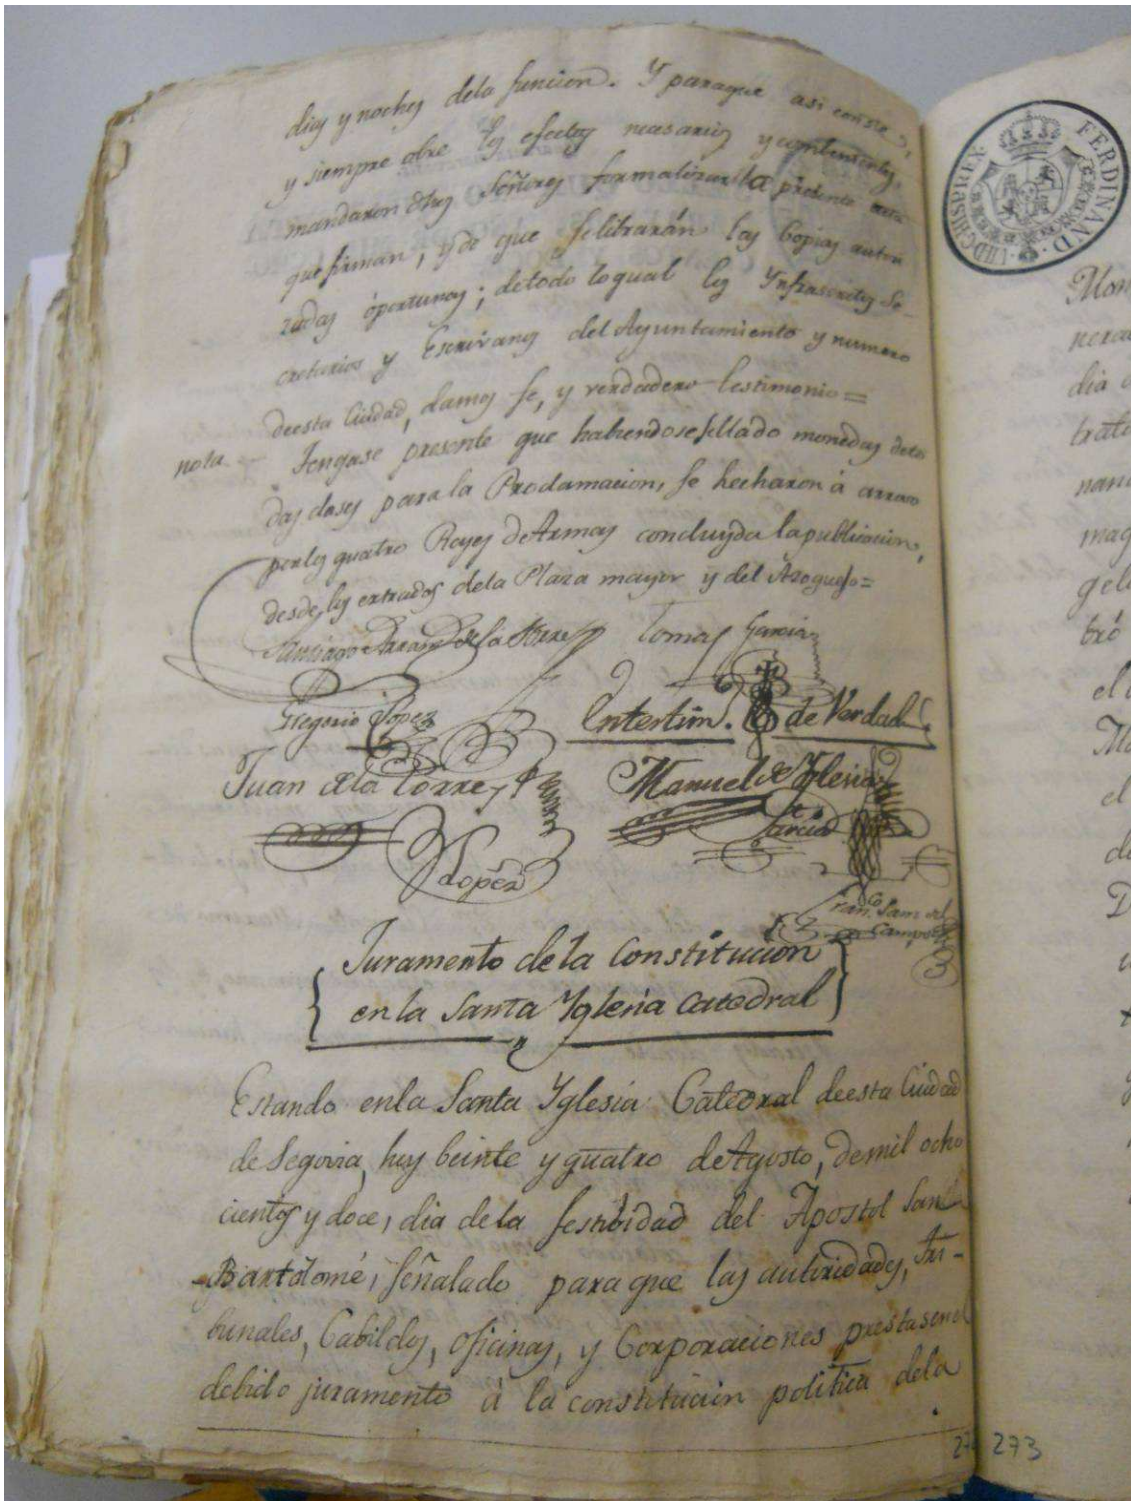 dias y noches dela funcion. Y paraque asi conste,
y siempre obre los efectos necesarios y combenientes,
mandaron dhos Señores formalizar la presente acta
que firman, y de que se librarán las Copias autori
zadas oportunas; detodo lo qual los Ynfrascritos Se-
cretarios y Escrivanos del Ayuntamiento y numero
deesta Ciudad, damos fe, y verdadero testimonio=
nota. Tengase presente que habiendose sellado monedas deto
das clases para la Proclamacion, se hecharon á arrojo
por los quatro Reyes de Armas concluyda la publicacion,
desde los extrados dela Plaza mayor y del Azoguejo=
Santiago de la Torre Tomas Garcia
Gregorio Lopez
En testim. de Verdad
Juan de la Torre y
Lopez
Manuel de Yglesia
Garcia
Fran.co Sam del
Campo
Juramento de la Constitucion
en la Santa Yglesia Catedral
Estando enla Santa Yglesia Catedral deesta Ciudad
de Segovia, hoy beinte y quatro de Agosto, demil ocho
cientos y doce, dia de la festibidad del Apostol San
Bartolomé, señalado para que las autoridades, Tri-
bunales, Cabildos, oficinas, y Corporaciones prestasen el
debido juramento á la constitucion politica dela
FERDINAND. VII. D. G. HISP. REX.
Mon
nera
dia
trat
nan
mag
gel
tró
el
el
273